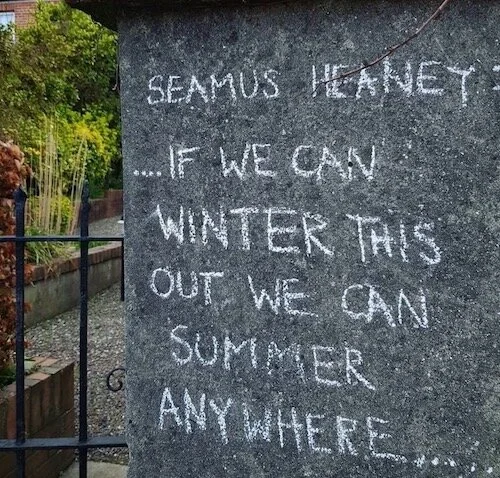 SEAMUS HEANEY:
....IF WE CAN
WINTER THIS
OUT WE CAN
SUMMER
ANYWHERE.....